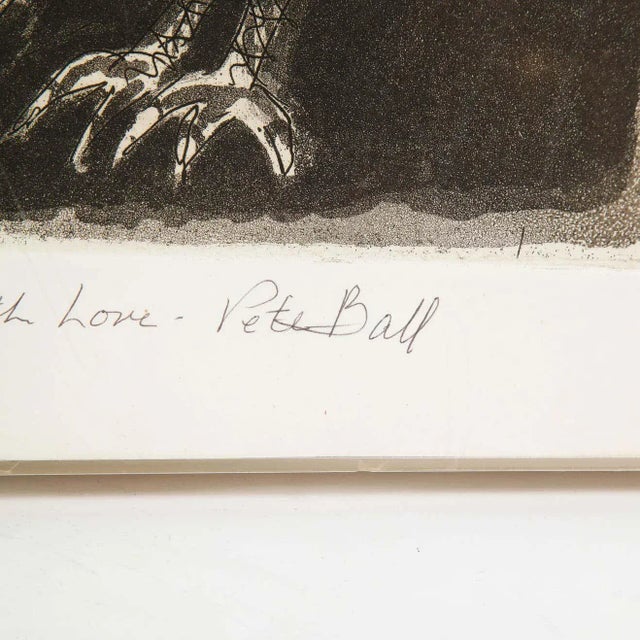 th Love - Pete Ball